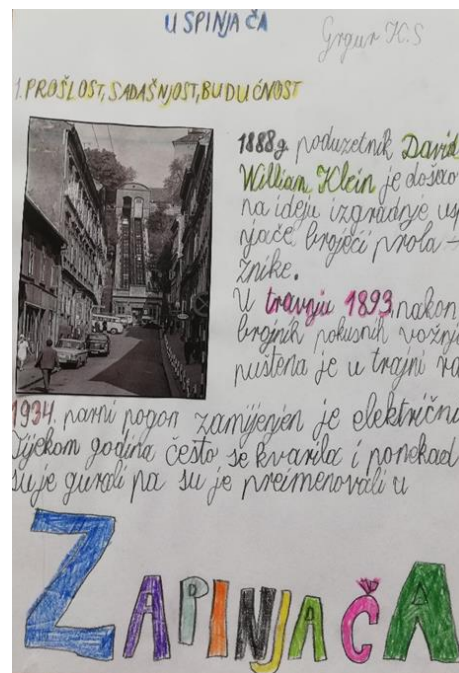 USPINJAČA
Grgur K.S
1. PROŠLOST, SADAŠNJOST, BUDUĆNOST
1888g. poduzetnik David
William Klein je došao
na ideju izgradnje usp
njače, brojeći prola-
znike.
U travnju 1893. nakon
brojnih pokusnih vožnja
puštena je u trajni ra
1934. parni pogon zamijenjen je električni
Tijekom godina često se kvarila i ponekad
su je gurali pa su je preimenovali u
ZAPINJAČA